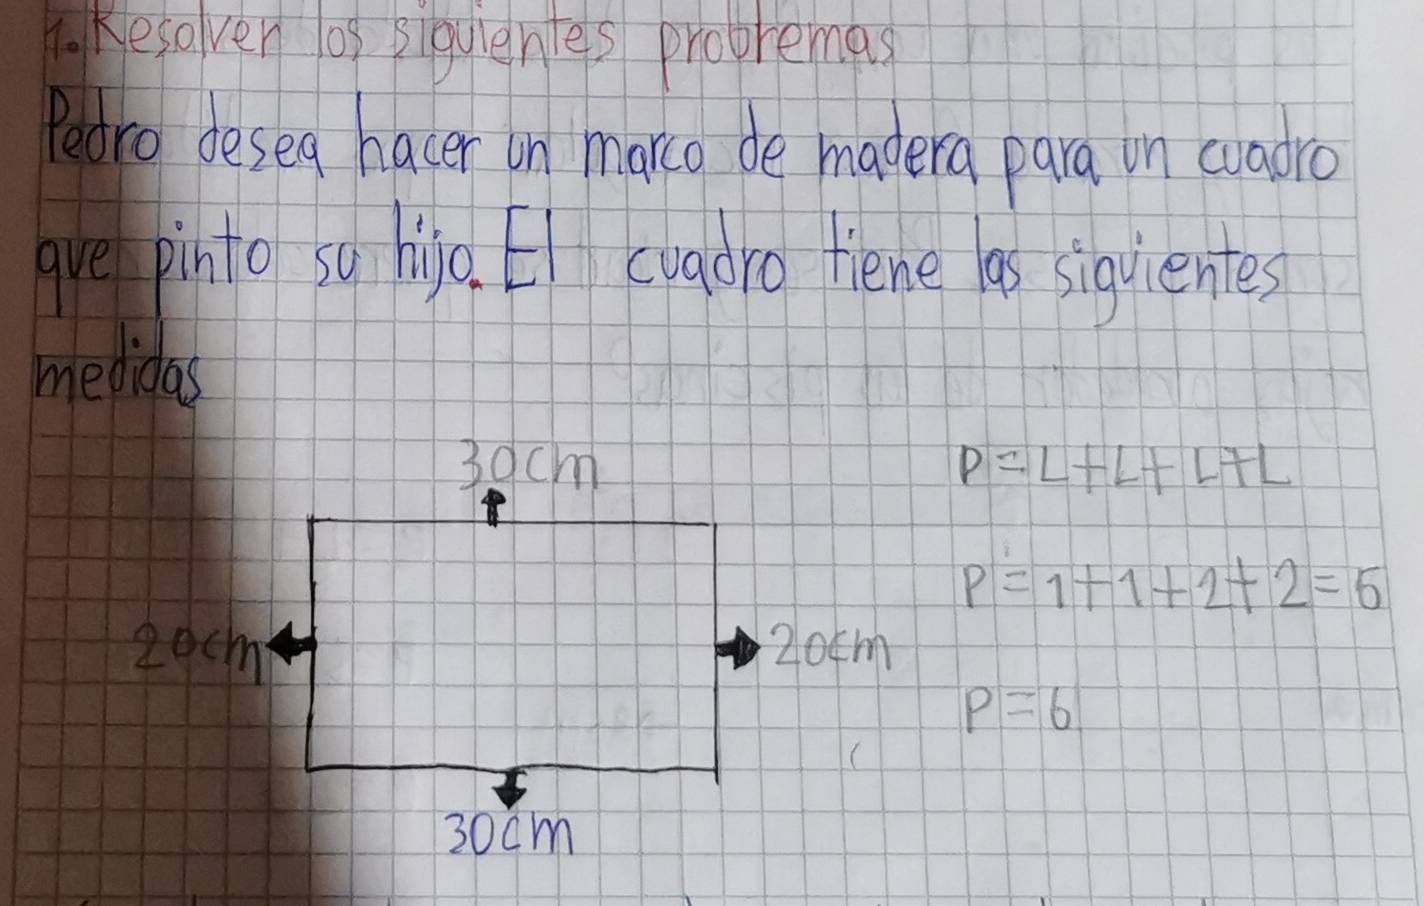 1. Resolver los siguientes probremas
Pedro desea hacer un marco de madera para un cuadro
que pinto su hijo. El cuadro tiene las siguientes
medidas
30cm
P=L+L+L+L
P=1+1+2+2=6
20cm
20cm
P=6
30cm